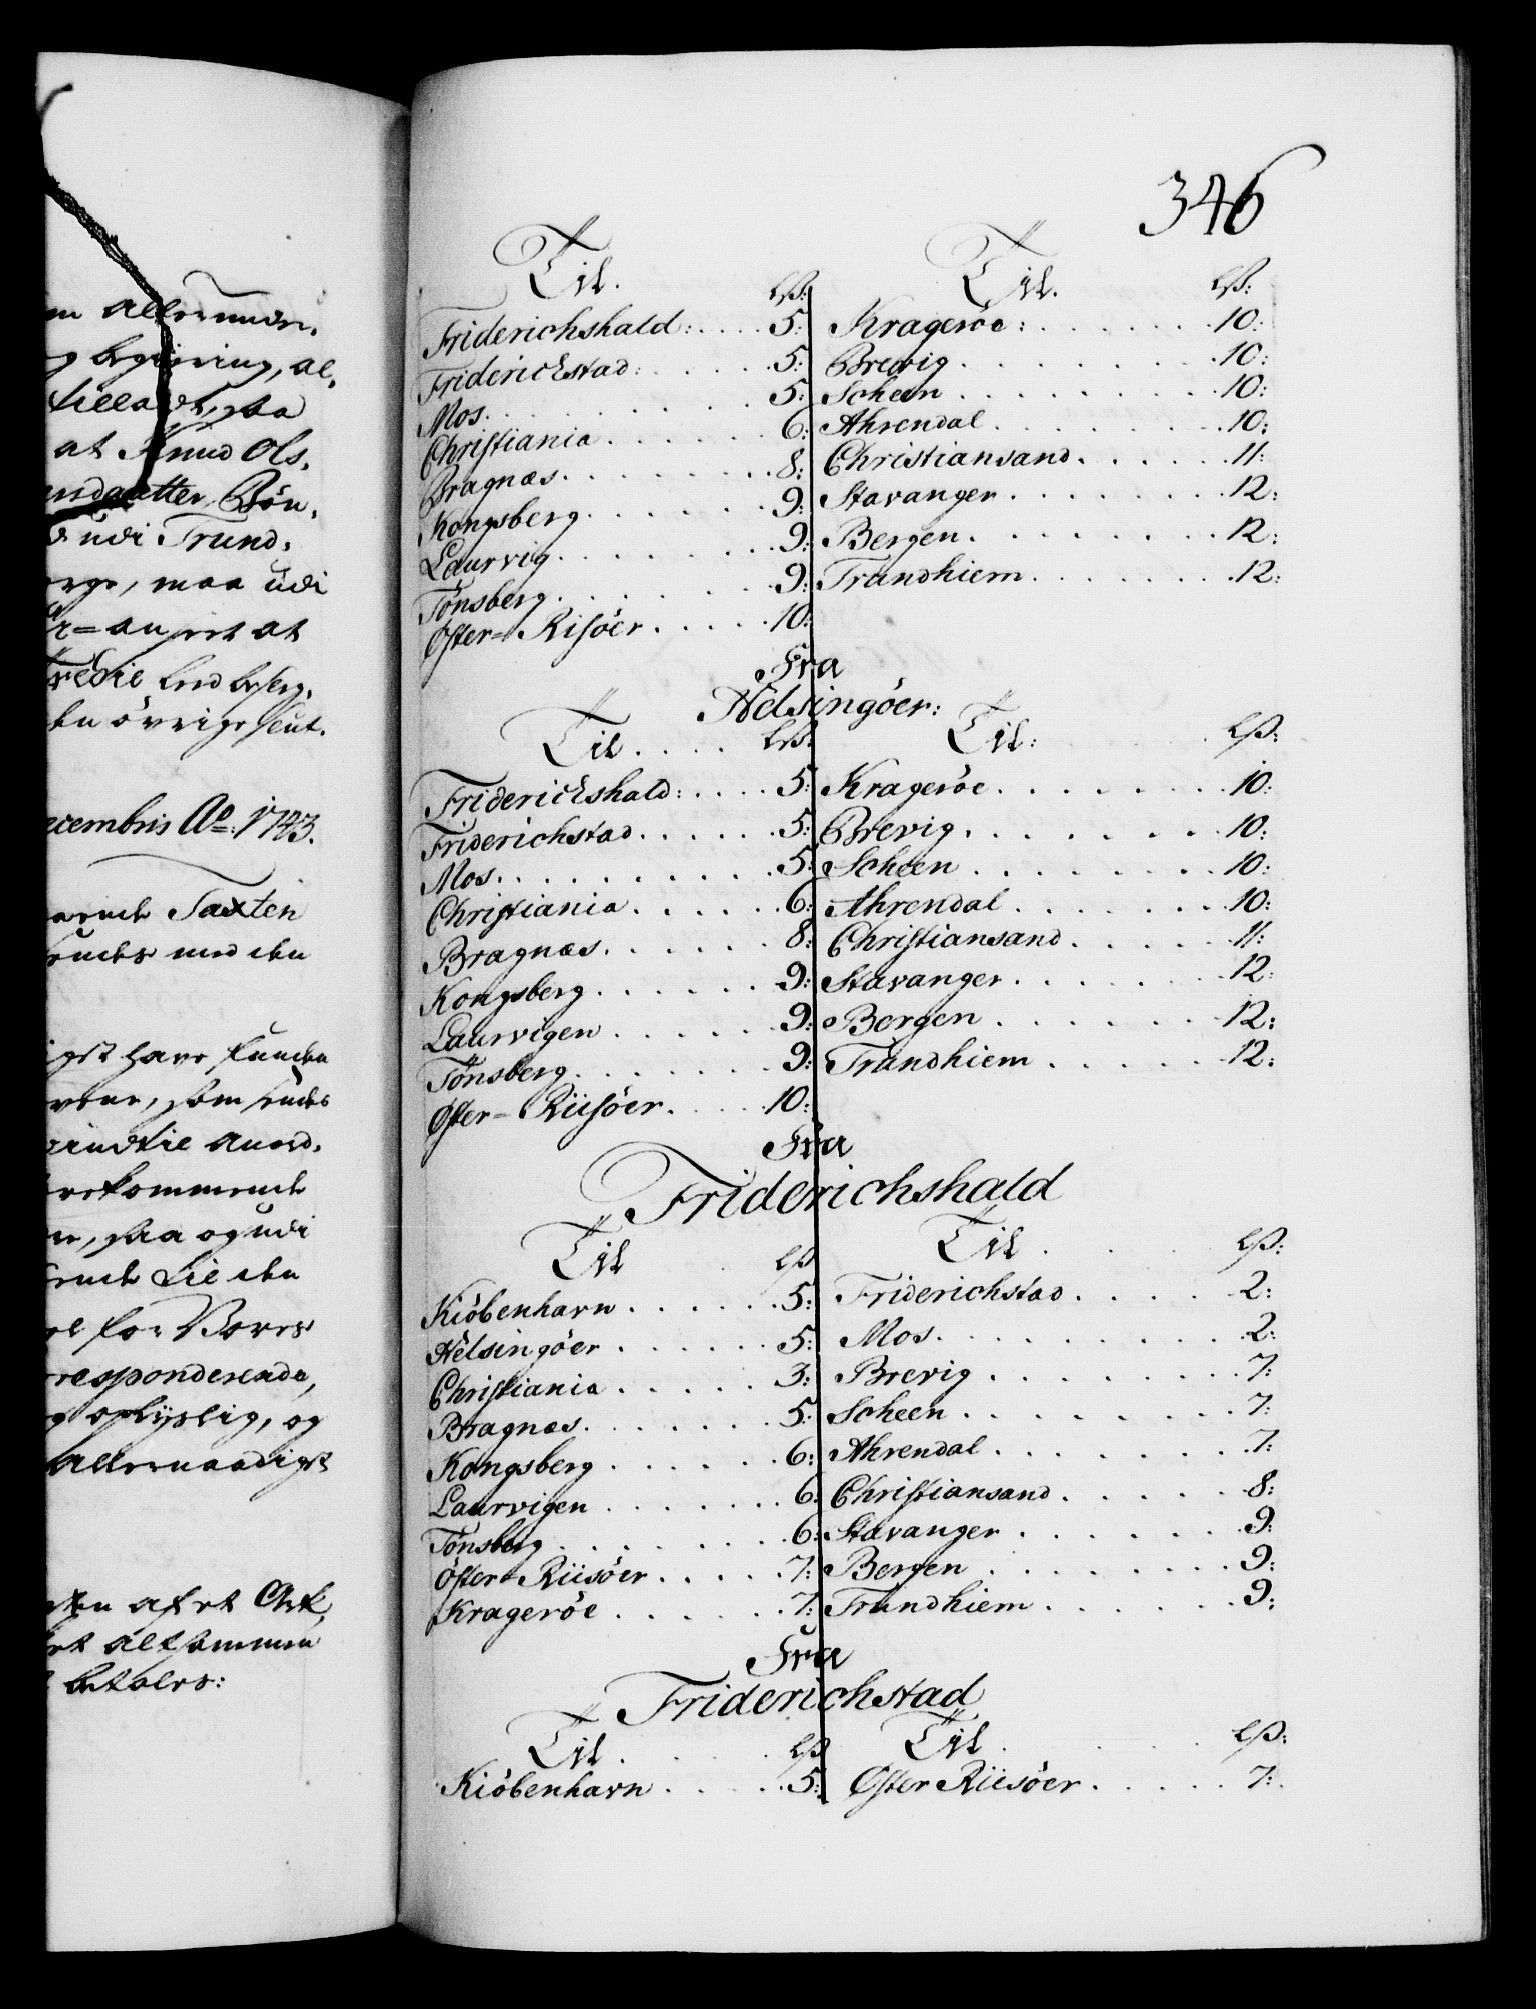 346
Til. lß: Til. lß:
Friderichshald: . . . . 5: Krageröe: . . . . . . . 10:
Friderichstad: . . . . . 5: Brevig . . . . . . . . 10:
Mos. . . . . . . . . . 5: Scheen . . . . . . . . 10:
Christiania . . . . . . 6: Ahrendal . . . . . . . 10:
Bragnæs. . . . . . . . 8: Christiansand. . . . . . 11:
Kongsberg . . . . . . 9: Stavanger . . . . . . . 12:
Laurvig. . . . . . . . 9: Bergen. . . . . . . . 12:
Tönsberg. . . . . . . 9: Trundhiem. . . . . . . 12:
Öster= Risöer . . . . . 10:
Fra
Helsingöer:
Til . . . . lß: Til: lß:
Friderichshald: . . . . 5: Krageröe . . . . . . . 10:
Friderichstad . . . . . 5: Brevig. . . . . . . . 10:
Mos. . . . . . . . . . 5: Scheen . . . . . . . . 10:
Christiania . . . . . . 6: Ahrendal . . . . . . . 10:
Bragnæs. . . . . . . 8: Christiansand . . . . . 11:
Kongsberg . . . . . . 9: Stavanger . . . . . . 12:
Laurvigen . . . . . . 9: Bergen . . . . . . . 12:
Tönsberg. . . . . . . 9: Trundhiem . . . . . . 12:
Öster= Riisöer. . . . 10:
Fra
Friderichshald
Til lß Til . . . lß:
Kiöbenhavn . . . . . . 5: Friderichstad . . . . 2:
Helsingöer . . . . . . 5: Mos. . . . . . . . . 2:
Christiania . . . . . 3: Brevig . . . . . . . . 7:
Bragnæs. . . . . . . 5: Scheen . . . . . . . . 7:
Kongsberg . . . . . . 6: Ahrendal . . . . . . . 7:
Laurvigen . . . . . . 6: Christiansand . . . . . 8:
Tönsberg . . . . . . . 6: Stavanger . . . . . . 9:
Öster= Riisöer . . . . 7: Bergen . . . . . . . . 9:
Krageröe . . . . . . 7: Trundhiem . . . . . . 9:
Fra
Friderichstad
Til . . . . lß Til . . . . lß:
Kiöbenhavn . . . . 5: Öster Riisöer . . . . . 7:
begiæring, al,
at Knud Ols,
Bön,
udi Trund,
maa udi
at
övrige
ecembris Ao: 1743.
Taxten
med den
have funden
som
Anord,
saa og udi
den
for Vores
responderende,
oplyslig, og
Allernaadigst
af et Ark,
altsammen
betales: